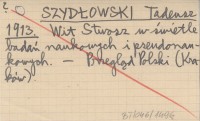 2
SZYDŁOWSKI Tadeusz
1913. Wit Stwosz w świetle
badań naukowych i pseudonau-
kowych. — Przegląd Polski (Kra-
ków)